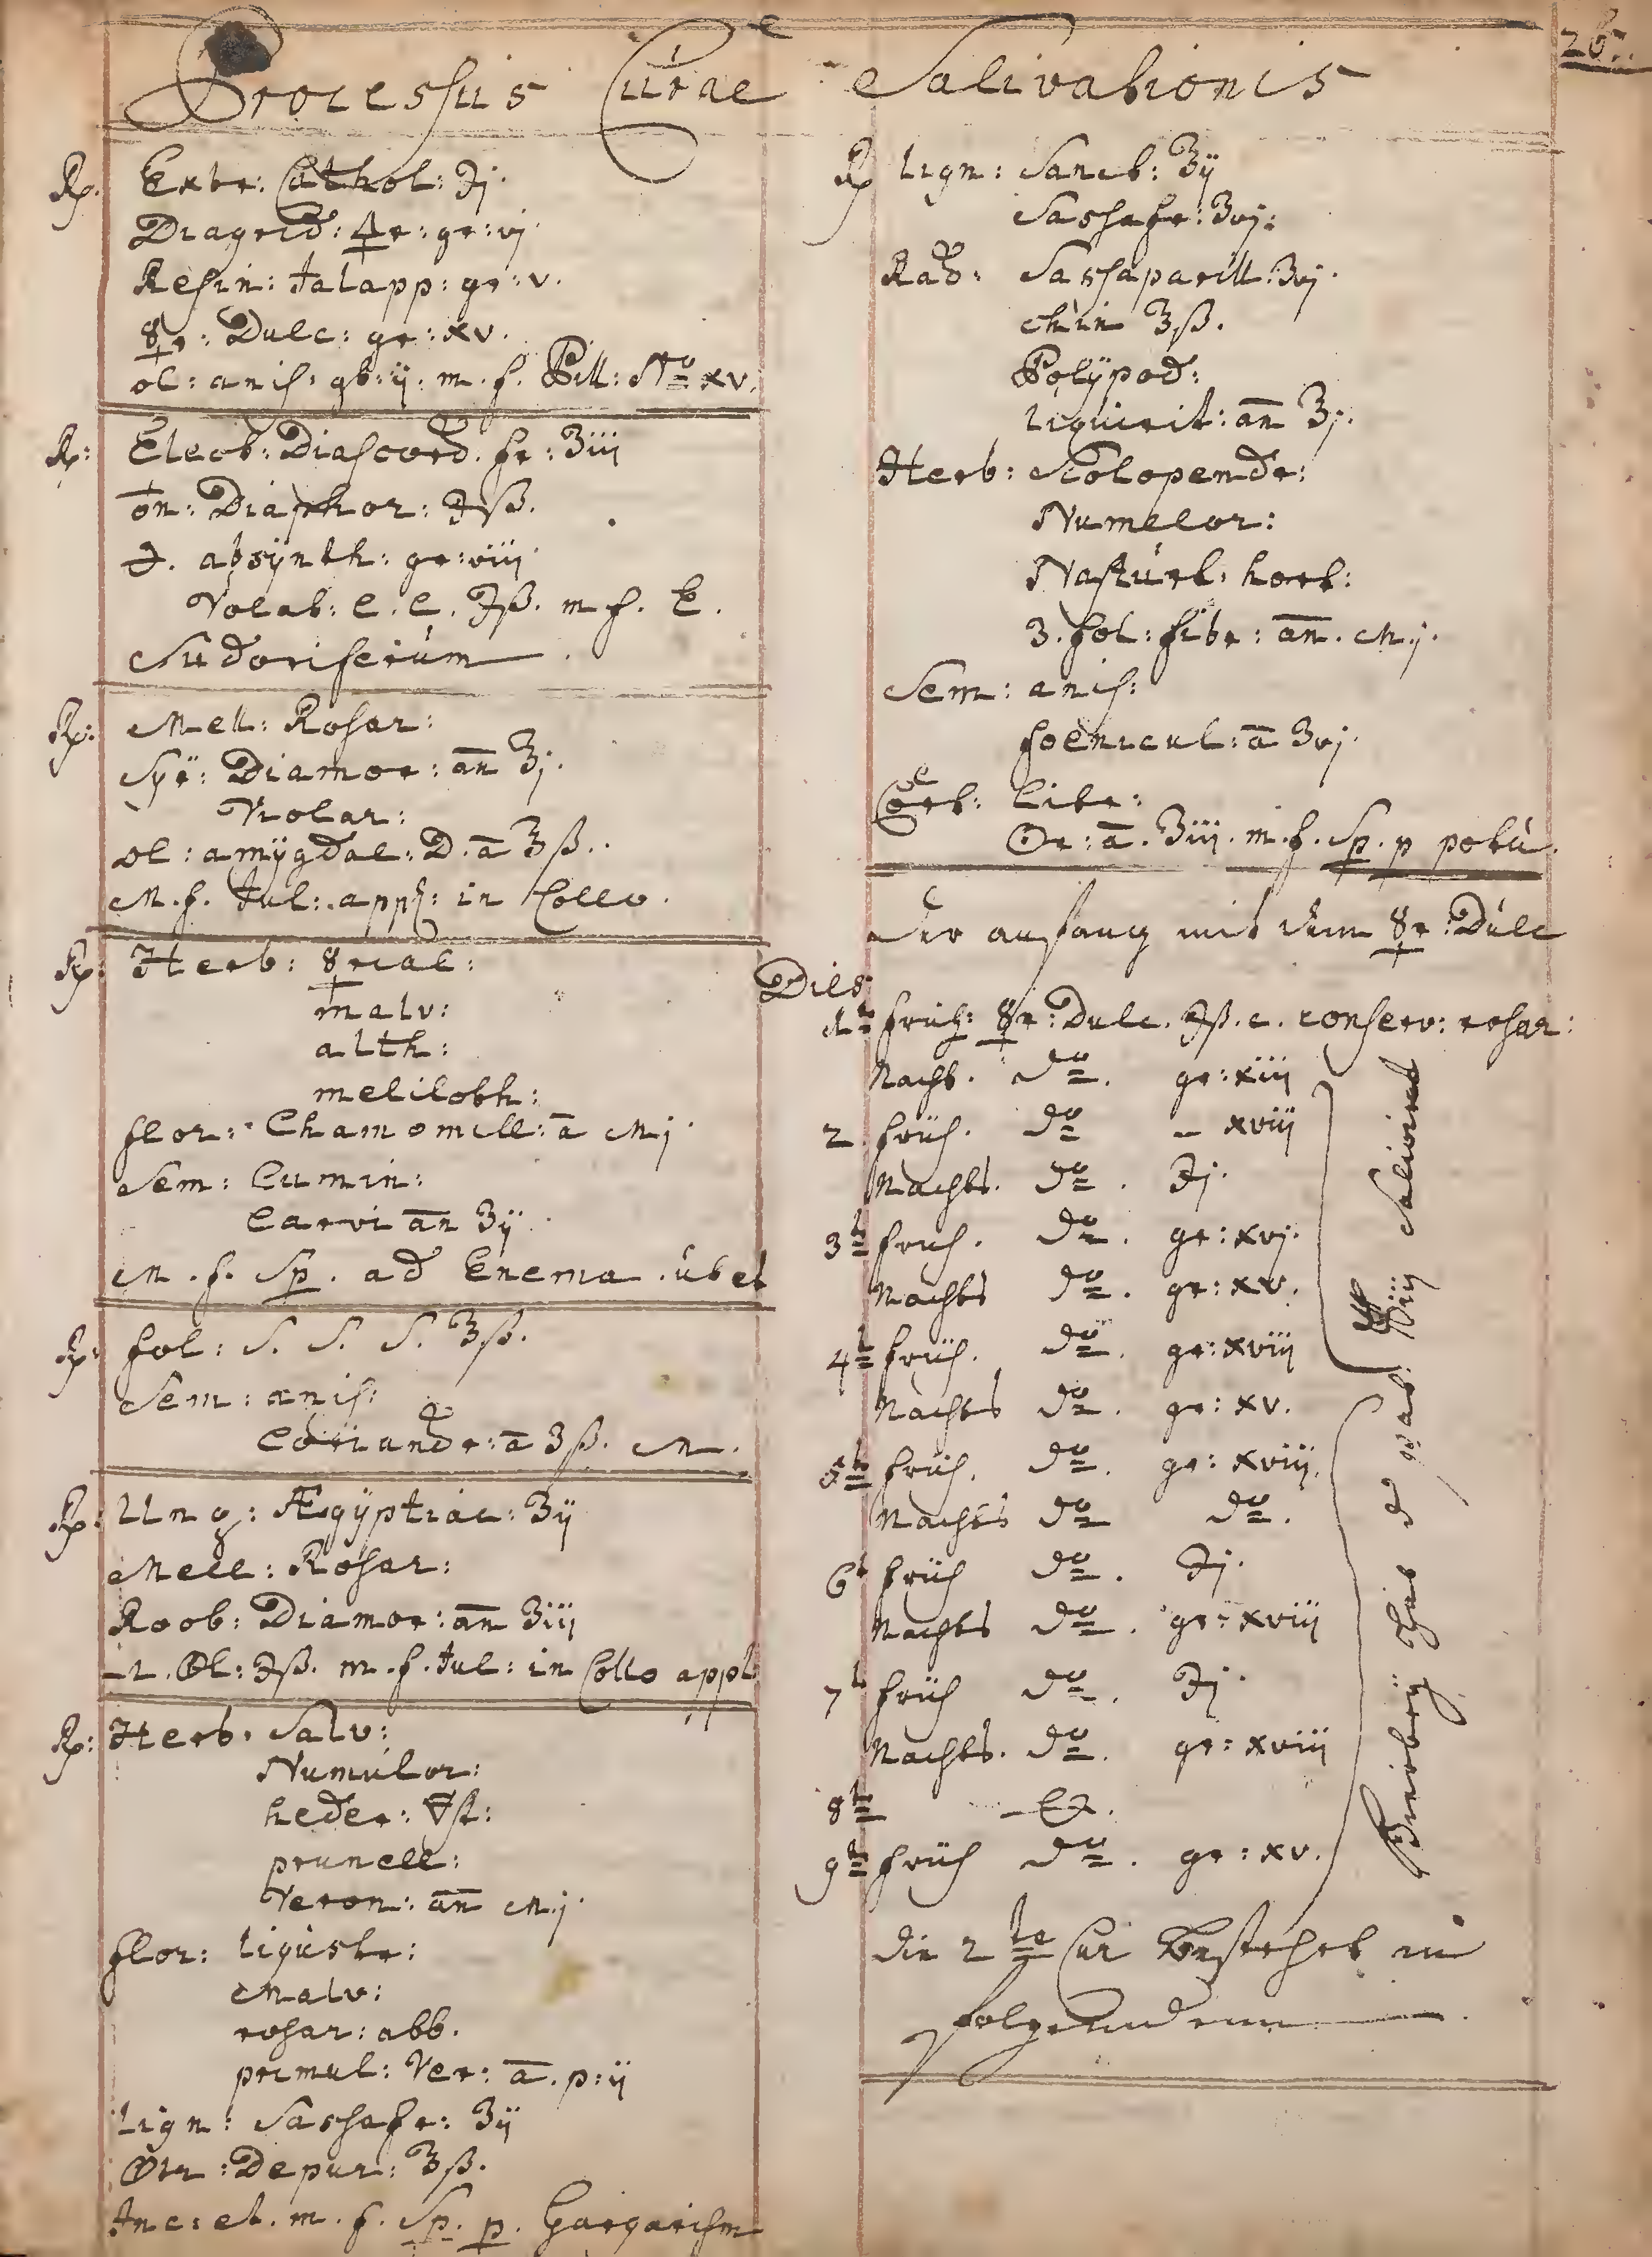 26.
Processus Curae Salivationis
Rp. Extr: Cathol: ℈j.
Diagrid: 🜍r: gr: vj.
Resin: Jalapp: gr: v.
☿r: Dulc: gr: xv.
ol: anis: gt: ij. m. f. Pill: No xv.
Rp: Elect: Diascord. fr: ʒiij
♁n: Diaphor: ℈ß.
absÿnth: gr: viij
Volat: C. C. ℈ß. m f. E.
Sudoriferum
Rp: Mell: Rosar:
Syr: Diamor: an ℥j.
Violar:
ol: amÿgdal: D. a ℥ß.
M. f. Jul: appl: in Collo.
Rp: Herb: ☿rial:
malv:
alth:
meliloth:
flor: Chamomill: a Mj
Sem: Cumin:
Carvi an ʒij
M. f. Sp. ad Enema
Rp: fol: S. S. S. ℥ß.
Sem: anis:
Coriandr: a ʒß. M.
Rp: Ung: Ægÿptiac: ʒij
Mell: Rosar:
Roob: Diamor: an ʒiij
Ol: ℈ß. m. f. Jul: in Collo appl
Rp: Herb. Salv:
Numulor:
heder: 🜃st:
prunell:
Veron: an Mj
flor: ligustr:
Malv:
rosar: alb.
primul: Ver: a. p: ij
Lign: Sassafr: ʒij
Depur: ℥ß.
Inc: et. m. f. Sp. p. Gargarism
Rp Lign: Sanct: ℥ij
Sassafr: ʒvj:
Rad: Sassaparill: ʒvj.
Chin ℥ß.
Polÿpod:
Liquirit: an ℥j.
Herb: Scolopendr:
Numelor:
Nasturt: hort:
3. fol: fibr: an. Mj.
Sem: anis:
foenicul: a ʒvj.
Cort: Citr:
Or: a. ʒiij. m. f. Sp. p potu.
Der anfang mit dem ☿r: Dulc
Dies
1t früh: ☿r: Dulc. ℈ß. c. conserv: rosar:
Nacht. do. gr: xiij
2 früh. do – xviij
Nachts. do. ℈j.
3t früh. do. gr: xvj.
Nachts do. gr: xv.
4t früh. do. gr: xviij
Nachts do. gr: xv.
5t früh. do. gr: xviij.
Nachts do do.
6t früh do. ℈j.
Nachts do. gr: xviij
7t früh do. ℈j.
Nachts. do. gr: xviij
8t
9t früh do. gr: xv.
Hierbeÿ hat Salivirt
die 2te Cur bestehet in
folgendem